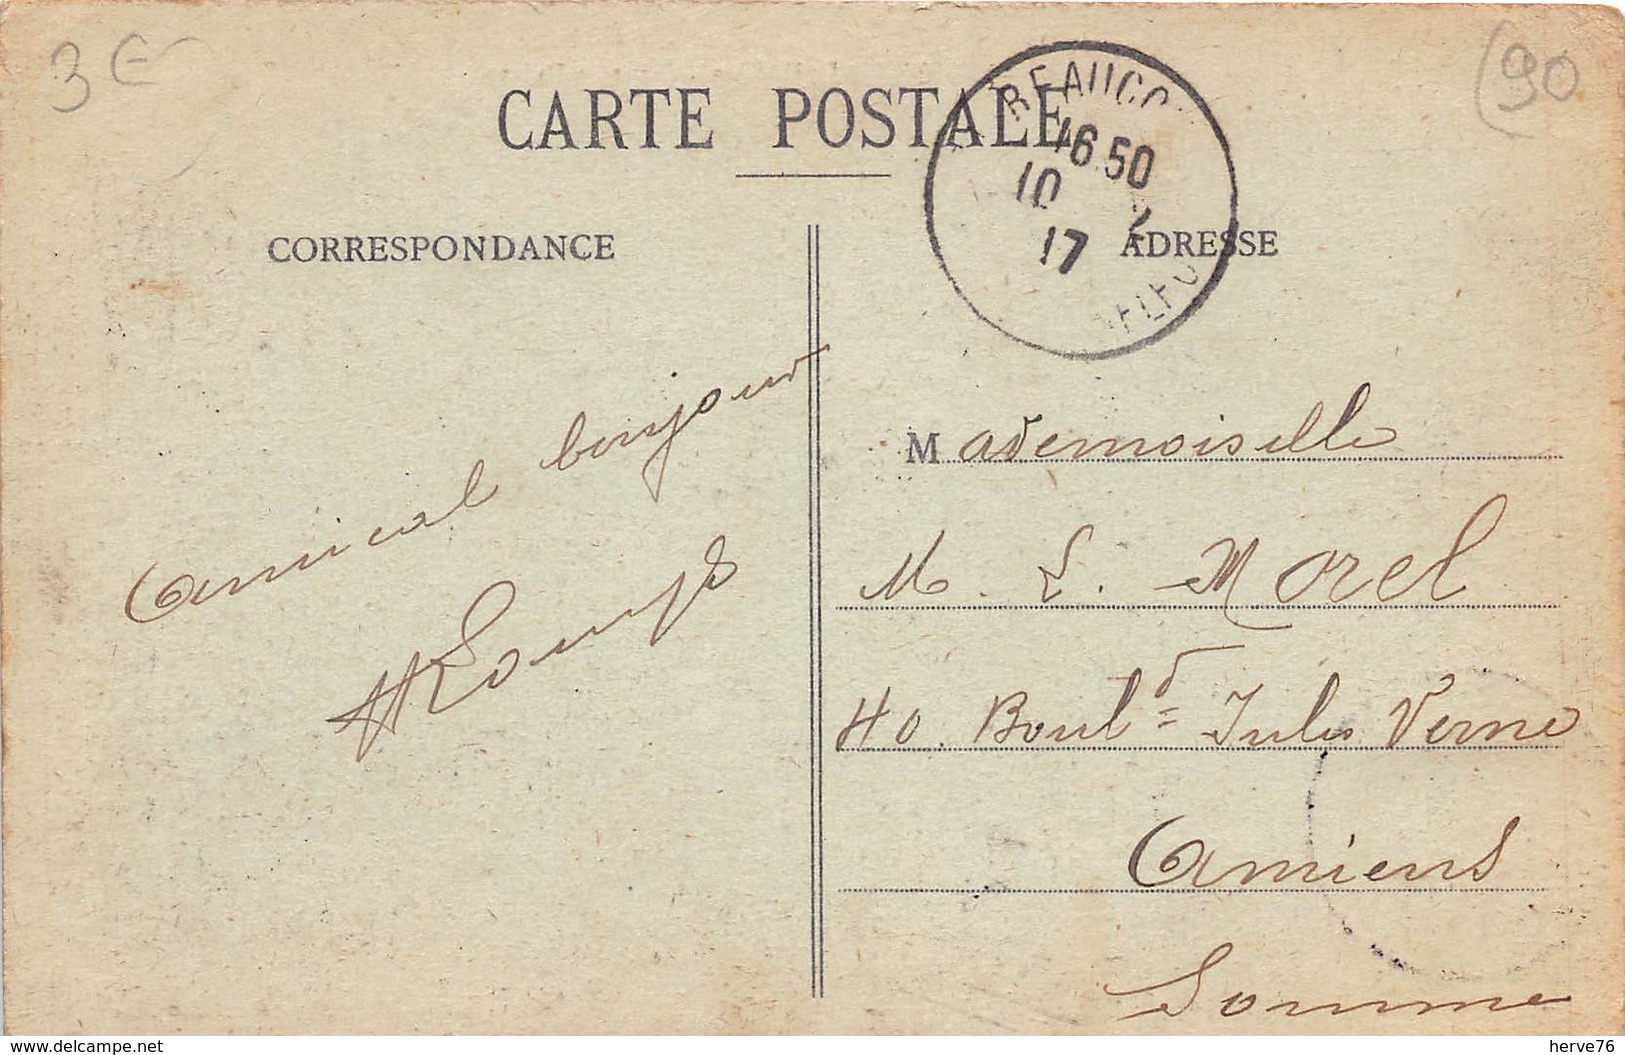 3€
(90
CARTE POSTALE
BEAUCO
16 50
10 2
17
CORRESPONDANCE
ADRESSE
Amical bonjour
Mademoiselle
M. L. Morel
40. Boul.d Jules Verne
Amiens
Somme
www.delcampe.net
herve76